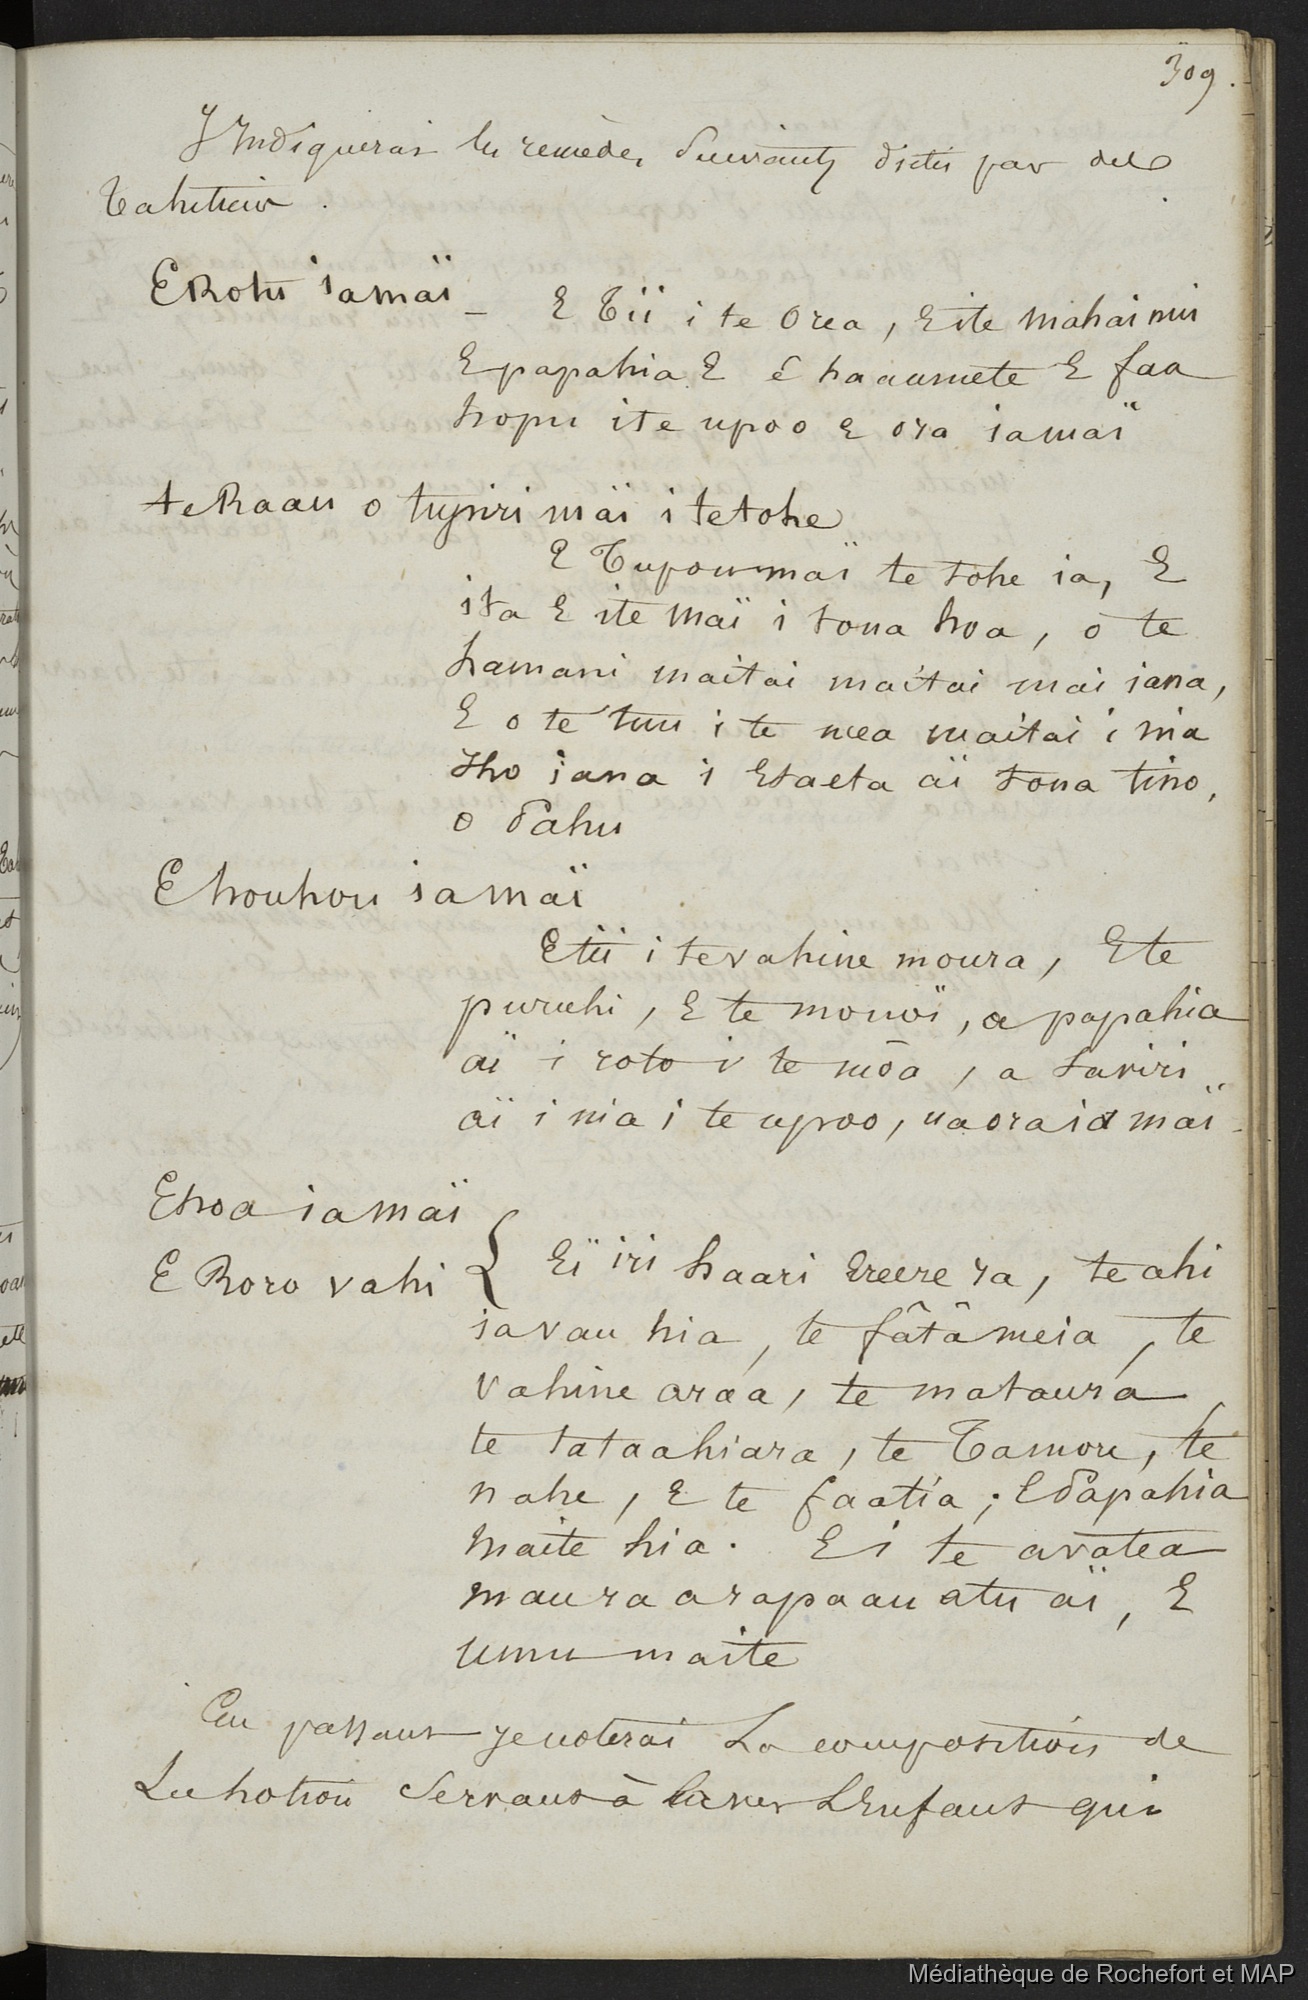 309.
J'Indiquerai les remèdes suivants dictés par des
Tahitiens.
E Rohi iamaï
— E Tii i te Orea, E ite mahaimui
E papahia E ê haaumete E faa
hopu ite upoo E ora iamaï
te Raau o tupriri mäi i te tohe
E Tupoumaï te tohe ia, E
ita E ite maï i tona hoa, o te
hamani maitai maitai mai iana,
E o te tuu i te mea maitai i nia
iho iana i Etaeta aï tona tino,
o Pahu
E houhou iamaï
E tii i te vahine moura, E te
puruhi, E te monoï, a papahia
aï i roto i te môa, a taviri
aï i nia i te upoo, ua ora ia maï.
E hoa iamaï
E Roro vahi { Eï iri haari Ereere ra, te ahi
iavau hia, te fâtâ meia, te
vahine araa, te mataura
te tataahiara, te Tamore, te
nahe, E te faatia; E Papahia
maite hia. E i te avatea
maura arapaau atu aï, E
umu maite
En passant je noterai La composition de
La Lotion Servant à laver L'Enfant qui
Médiathèque de Rochefort et MAP